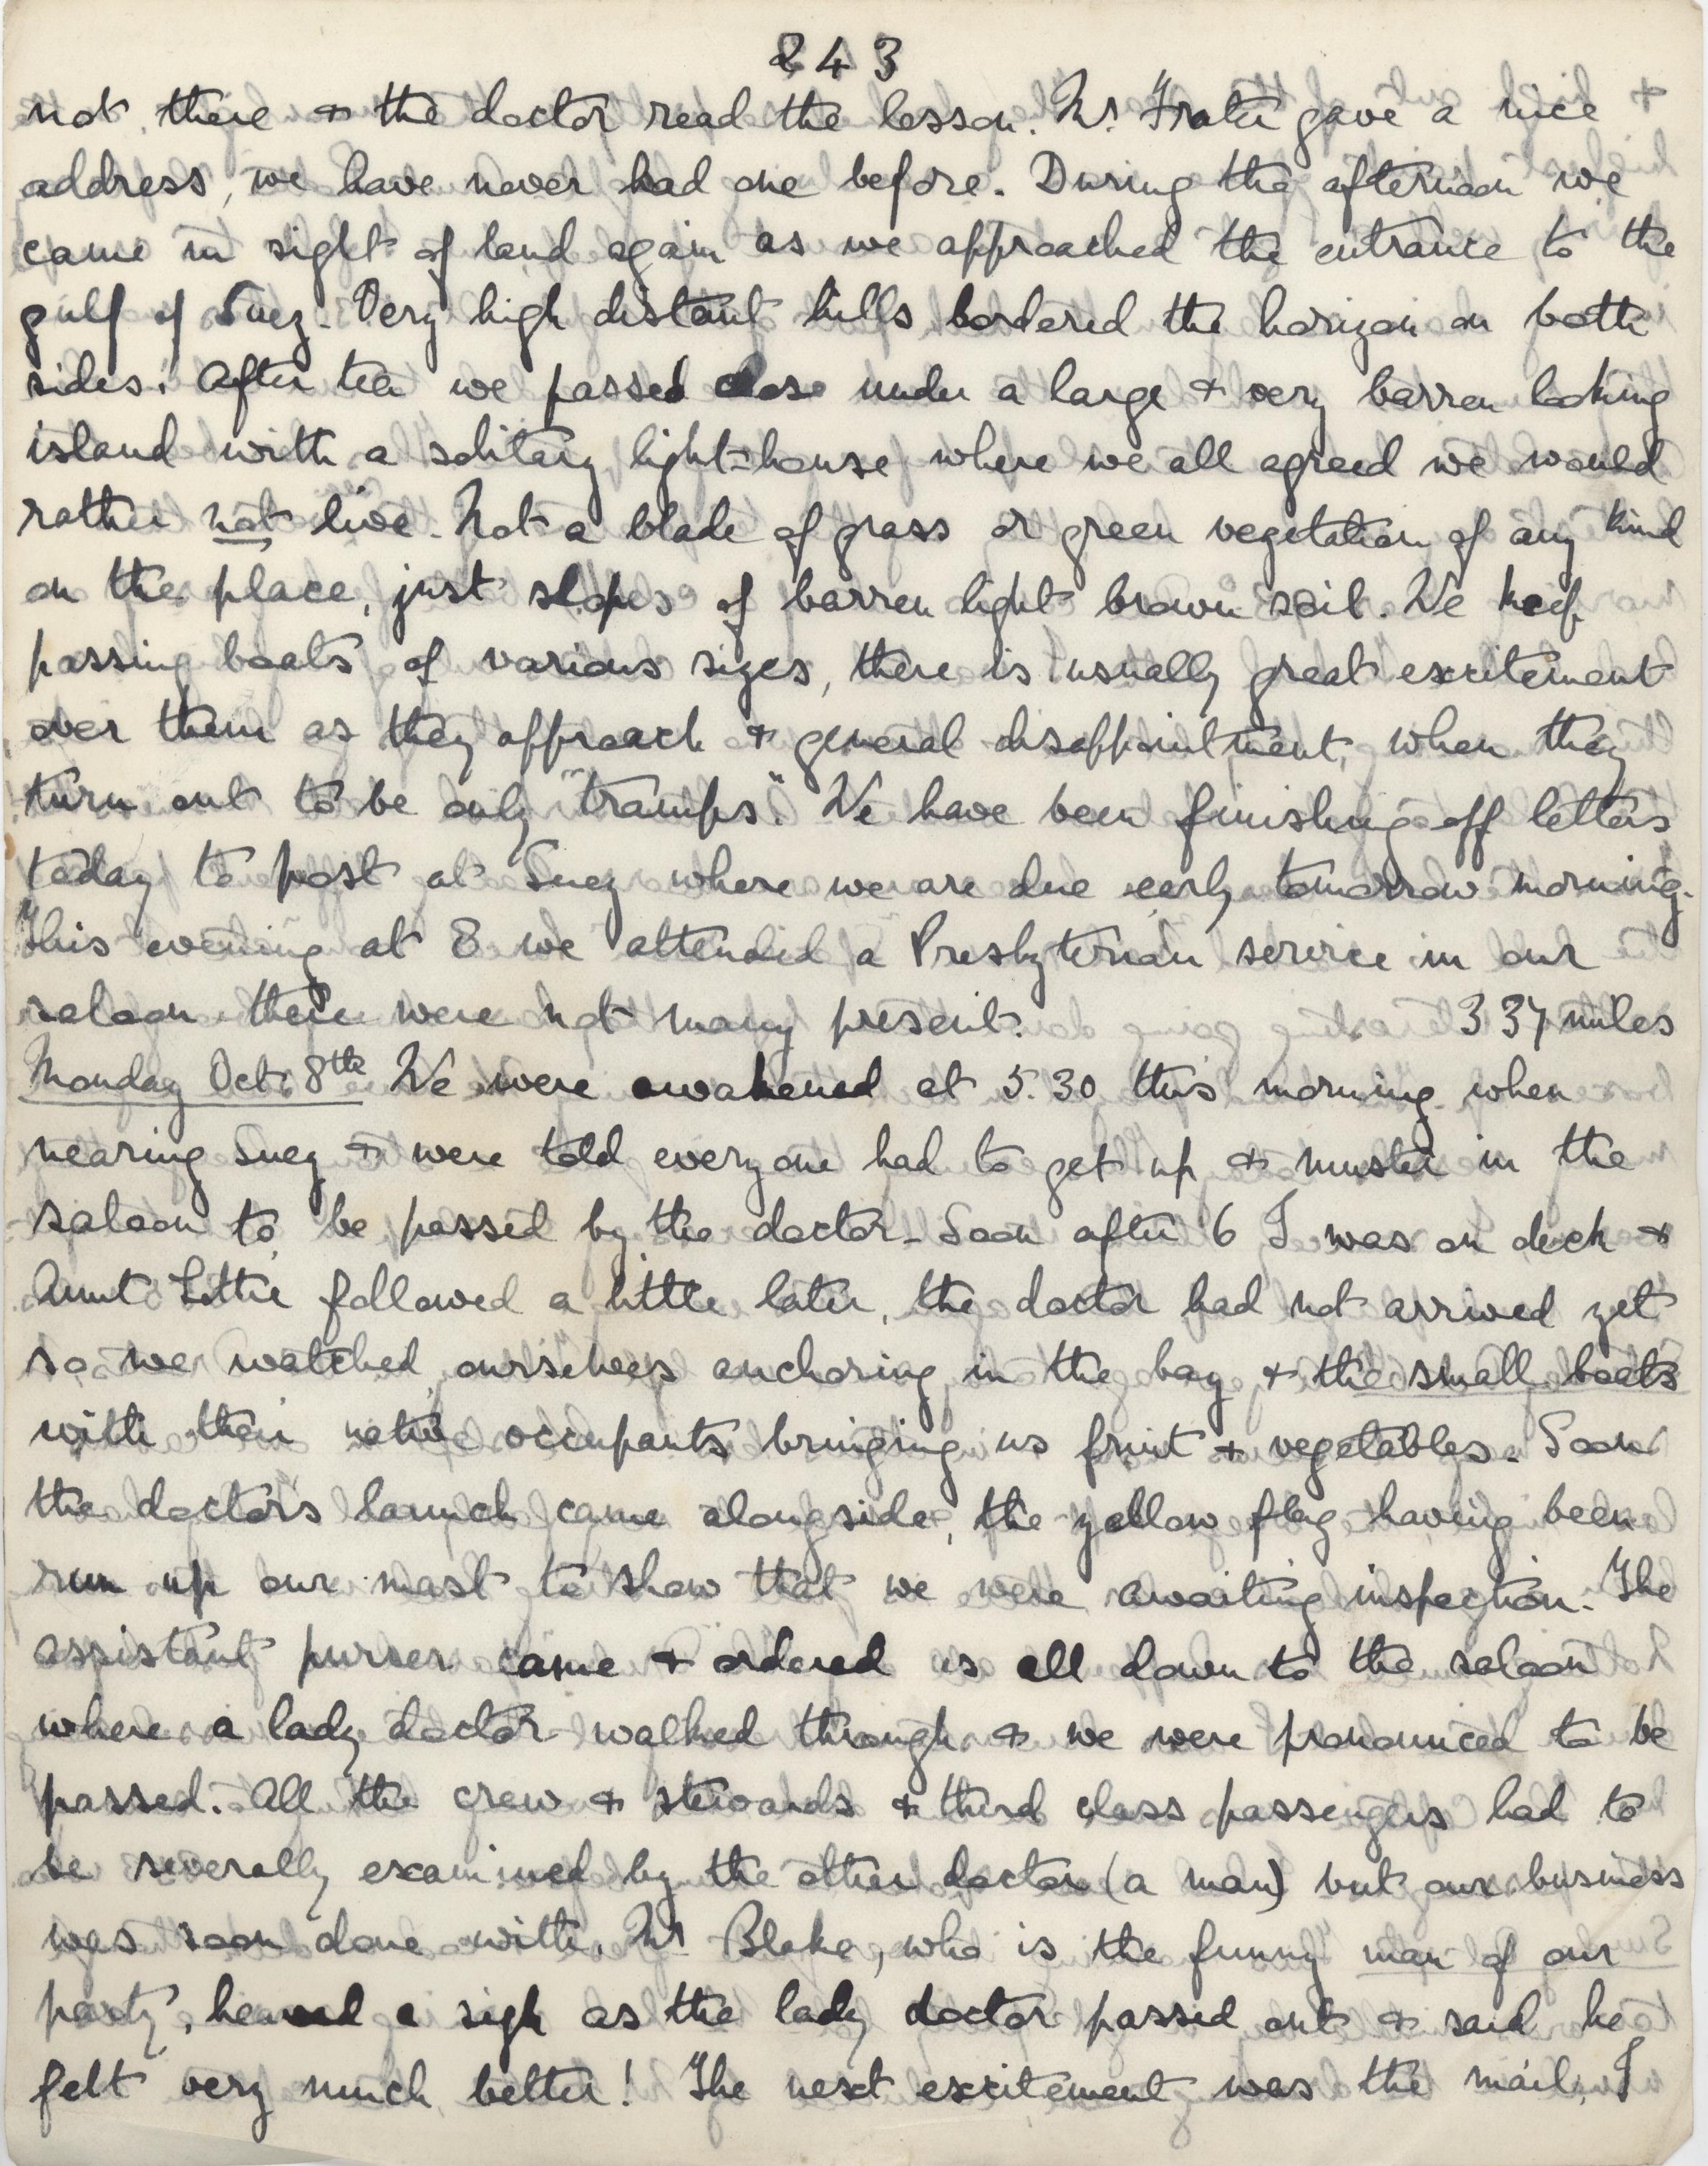 243
not there & the doctor read the lesson. Mr. Frater gave a nice
address, we have never had one before. During the afternoon we
came in sight of land again as we approached the entrance to the
gulf of Suez. Very high distant hills bordered the horizon on both
sides. After tea we passed close under a large & very barren looking
island with a solitary light-house where we all agreed we would
rather not live. Not a blade of grass or green vegetation of any kind
on the place, just slopes of barren light brown soil. We keep
passing boats of various sizes, there is usually great excitement
over them as they approach & general disappointment, when they
turn out to be only "tramps." We have been finishing off letters
today to post at Suez where we are due early tomorrow morning.
This evening at 8 we attended a Presbyterian service in our
saloon there were not many present. 337 miles
Monday Oct. 8th We were awakened at 5.30 this morning when
nearing Suez & were told everyone had to get up & muster in the
saloon to be passed by the doctor. Soon after 6 I was on deck &
Aunt Lottie followed a little later, the doctor had not arrived yet
so we watched ourselves anchoring in the bay & the small boats
with their native occupants bringing us fruit & vegetables. Soon
the doctor's launch came alongside, the yellow flag having been
run up our mast to show that we were awaiting inspection. The
assistant purser came & ordered us all down to the saloon
where a lady doctor walked through & we were pronounced to be
passed. All the crew & stewards & third class passengers had to
be severally examined by the other doctor (a man) but our business
was soon done with. Mr Blake, who is the funny man of our
party, heaved a sigh as the lady doctor passed out & said he
felt very much better! The next excitement was the mail, I